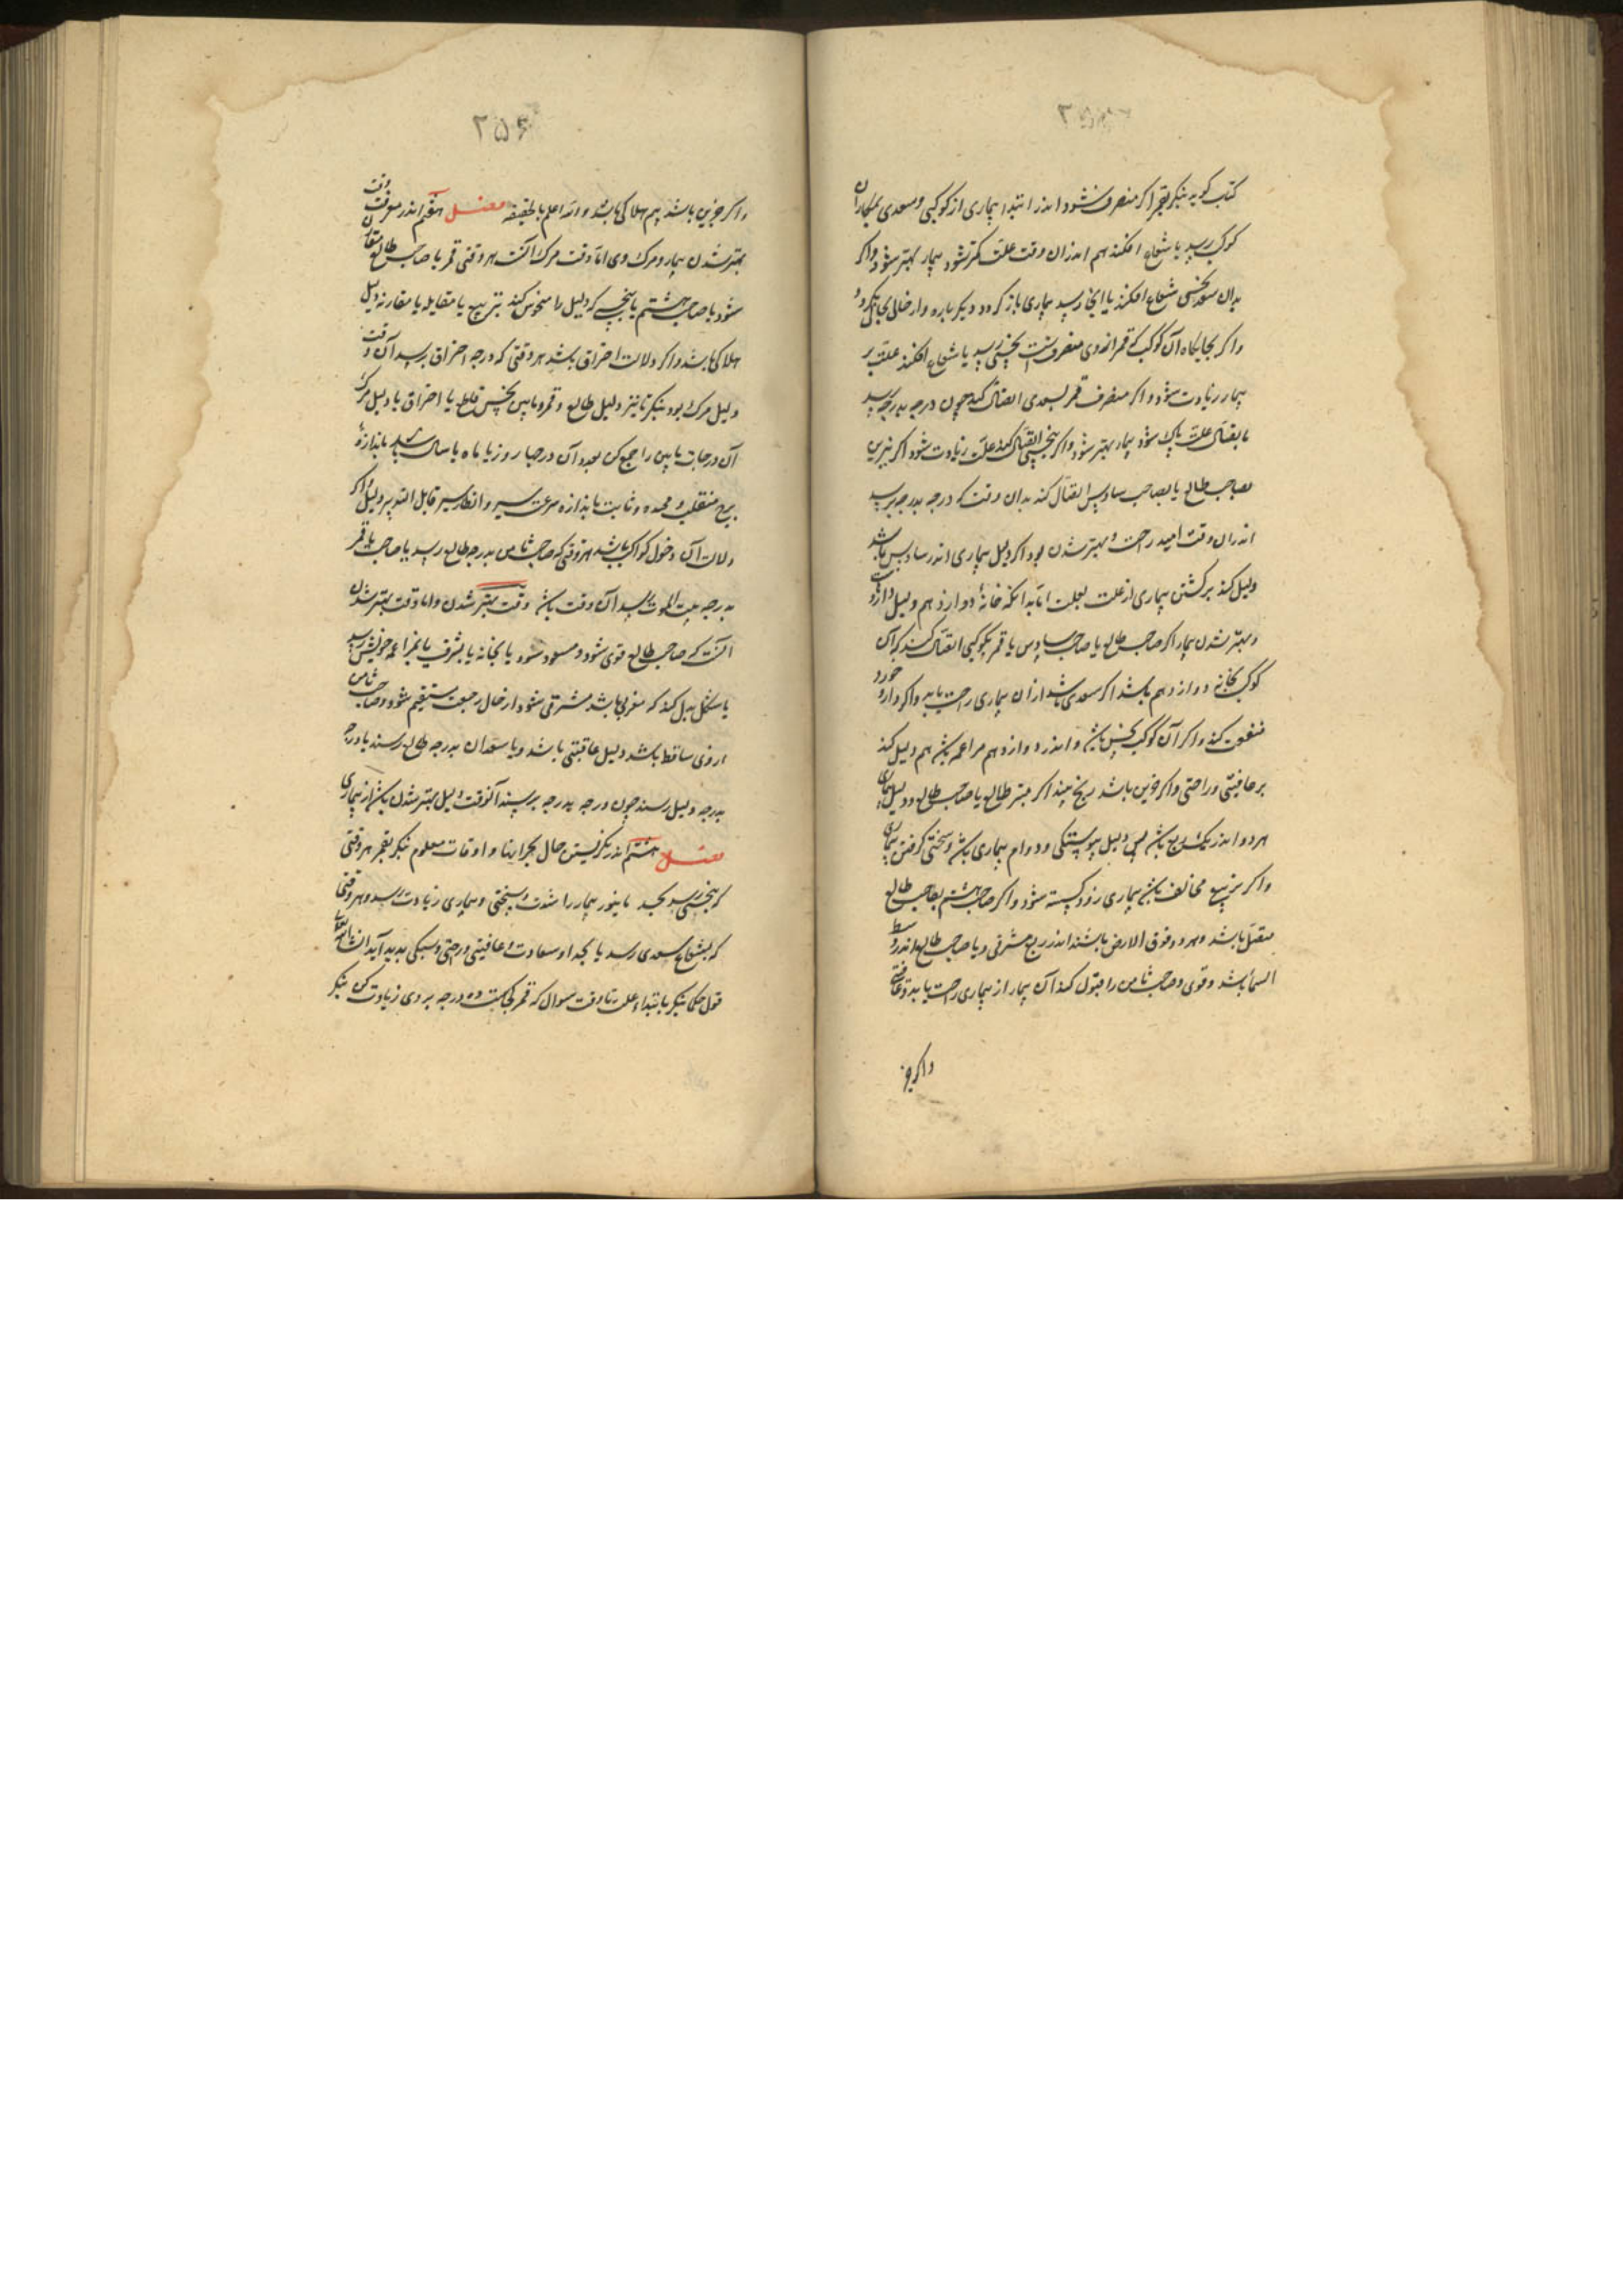 کتب کوید بنکر بقمر اکر منصرف شود اندر ابتدا بیماری از کوکبی و سعدی بمکان آن
کوکب رسد یا شعاع افکند هم اندران وقت علت کمتر شود بیمار بهتر شود و اکر
بدان سعد نحسی شعاع افکند یا آنجا رسد بیماری باز کردد دیکر باره و از حالی بحالی بکردد
و اکر بجایکاه آن کوکب که قمر از وی منصرفست نحسی رسد یا شعاع افکند علت بر
بیمار زیادت شود و اکر منصرف قمر بسعدی اتصال کند چون درجه بدرجه رسد
باتصال علت پاک شود بیمار بهتر شود و اکر بنحسی اتصال کند علت زیادت شود اکر نیرین
بصاحب طالع یا بصاحب سادس اتصال کند بدان وقت که درجه بدرجه برسد
اندران وقت امید راحت و بهتر شدن بود اکر دلیل بیماری اندر سادس باشد
دلیل کند بر کشتن بیماری از علت بعلت اما بدانکه خانهٔ دوازدهم دلیل داروست
و بهتر شدن بیمار اکر صاحب طالع یا صاحب سادس یا قمر بکوکبی اتصال کند که آن
کوکب بخانه دوازدهم باشد اکر سعدی باشد ازان بیماری راحت یابد و اکر دارو خورد
منفعت کند و اکر آن کوکب نحس باشد و اندر دوازدهم مزاعم باشد هم دلیل کند
بر عافیتی و راحتی و اکر جزین باشد رنج بیند اکر مبتز طالع یا صاحب طالع و دلیل بیماری
هر دو اندر یک برج باشد پس دلیل پیوستکی و دوام بیماری باشد و سختی کرفتن بیماری
و اکر بتربیع مخالف باشد بیماری زود کسسته شود و اکر صاحب هشتم بصاحب طالع
متصل باشد و هر دو فوق الارض باشند اندر ربع مشرقی و یا صاحب طالع اندر وسط
السما باشد و قوی و صاحب ثامن را قبول کند آن بیمار از بیماری راحت یابد و عافیتی
و اکر جز
۲۵۶
و اکر جزین باشد بیم هلاکی باشد و الله اعلم بالحقیقه فصل هفتم اندر معرفت وقت
بهتر شدن بیمار و مرک وی اما وقت مرک آنست هر وقتی قمر با صاحب طالع مقارن
شود با صاحب هشتم یا بنحسی که دلیل را منحوس کند بتربیع یا مقابله یا مقارنه دلیل
هلاکی باشد و اکر دلالت احتراق باشد هر وقتی که درجه احتراق برسد آن وقت
دلیل مرک بود بنکر تا نیز دلیل طالع و قمر و ما بین نحس قاطع یا احتراق یا دلیل مرک
آن درجات ما بین را جمع کن بعدد آن درجها روز یا ماه یا سال باشد باندازهٔ
برج منقلب و مجسده و ثابت باندازه سرعت سیر و ابطا سیر قابل التدبیر دلیل و اکر
دلالت آن دخول کواکب باشد هر وقتی که صاحب ثامن بدرجه طالع رسد یا صاحب یا قمر
بدرجه بیت الموت رسد آن وقت باشد وقت بهتر شدن و اما وقت بهتر شدن
آنست که صاحب طالع قوی شود و مسعود شود یا بخانه یا بشرف یا بمزاعمه خویش رسد
یا شکل بدل کند که مغربی باشد مشرقی شود از حال رجعت مستقیم شود و صاحب ثامن
از وی ساقط باشد دلیل عاقبتی باشد و یا سعدان بدرجه طالع رسند یا درجه
بدرجه دلیل رسند چون درجه بدرجه برسند آنوقت دلیل بهتر شدن باشد از بیماری
فصل هشتم اندر نکریستن حال بحرانها و اوقات معلوم بنکر بقمر هر وقتی
که بنحسی رسد بجسد یا بنور بیمار را شدت و سختی و بیماری زیادت رسد و هر وقتی
که بشعاع سعدی رسد یا بجسد او سعادت و عافیتی و راحتی و سبکی پدید آید ان شاء الله تعالی
قول حکما بنکر بابتداء علت تا وقت سوال که قمر کجاست ده درجه بر وی زیادت کن بنکر